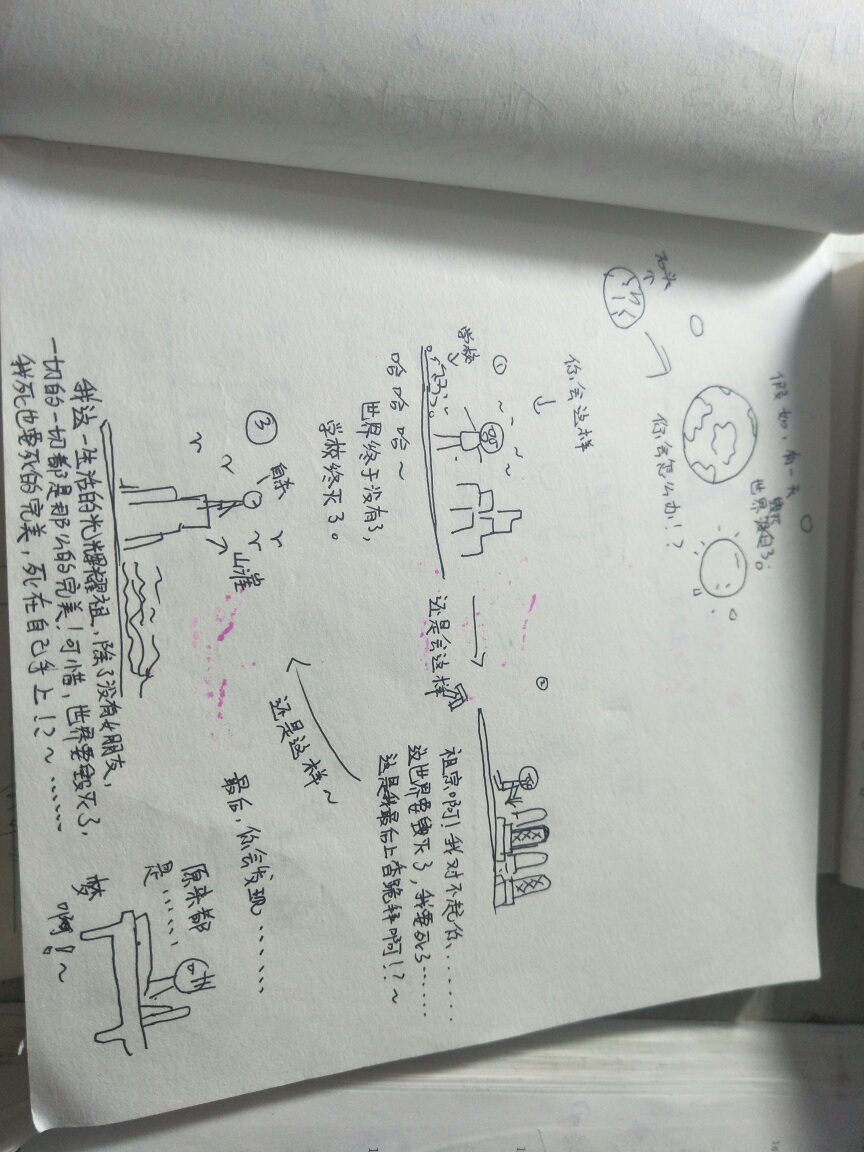 假如，有一天
世界毁灭了。
石头
你会怎么办！？
你会这样
①
学校
哈哈哈～
世界终于没有了，
学校终灭了。
还是会这样
②
祖宗啊！我对不起你.......
这世界要毁灭了，我要死了......
这是我最后上香跪拜啊！？～
还是这样～
③
自杀
山崖
我这一生活的光耀祖，除了没有女朋友，
一切的一切都是那么的完美！可惜，世界要毁灭了，
我死也要死的完美，死在自己手上！？～......
最后，你会发现......
原来都
是......
梦
啊！～